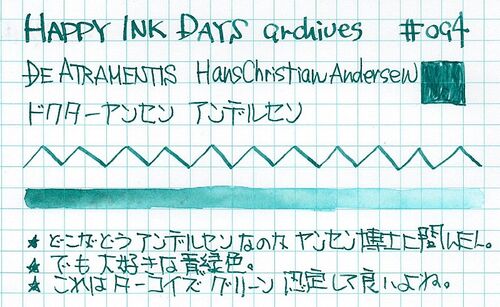 HAPPY INK DAYS archives #094
DE ATRAMENTIS HansChristianAndersen
ドクターヤンセン アンデルセン
★ どこがどうアンデルセンなのか ヤンセン博士に聞いてみたい。
★ でも 大好きな青緑色。
★ これは ターコイズ グリーン 認定して良いよね。